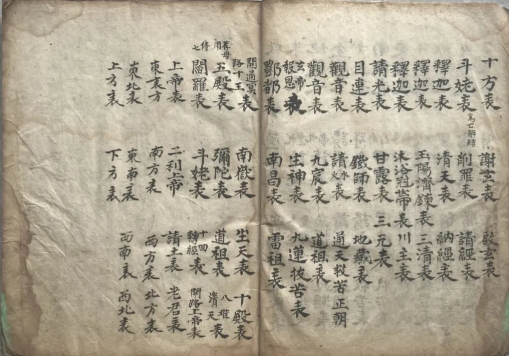 十方表 謝玄表 啟玄表
斗姥表 為亡解結 削羅表 請經表
釋迦表 清天表 納經表
釋迦表 玉陽濟鍊表 三清表
釋迦表 沐浴冠帶表 川主表
請光表 甘露表 三元表
目連表 鐵師表 地藏表
觀音表 請水火表 通天救苦正朝
觀音表 九宸表 道祖表
玄帝報恩表 生神表 九蓮拔苦表
酆都表 南昌表 雷祖表
開通冥路十王表 南嶽表 生天表 十殿表
五殿表 彌陀表 道祖表 八難清天表
閻羅表 斗姥表 十四轉經表 開路王帝表
上帝表 二利上帝 請土表 老君表
東方表 南方表 西方表 北方表
東北表 東南表 西南表 西北表
上方表 下方表